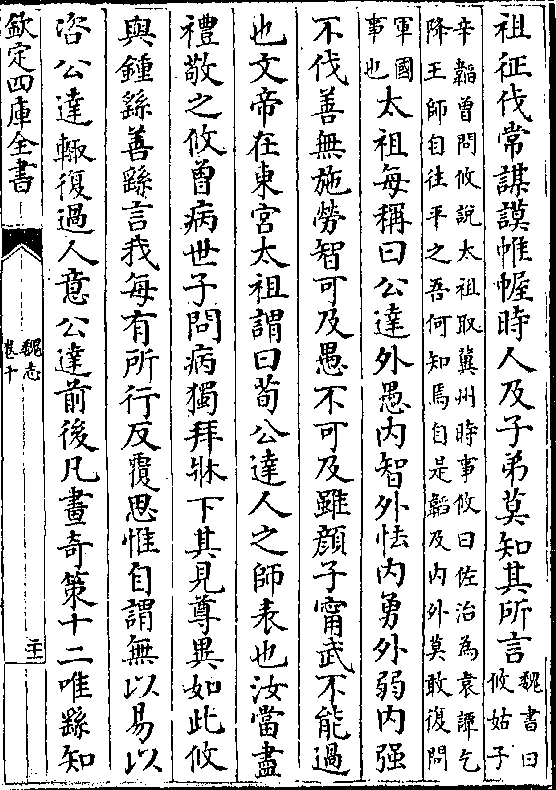 祖征伐常謀謨帷幄時人及子弟莫知其所言魏書曰攸姑子
辛韜曾問攸説太祖取冀州時事攸曰佐治為袁譚乞
降王師自往平之吾何知焉自是韜及内外莫敢復問
軍國事也太祖每稱曰公達外愚内智外怯内勇外弱内强
不伐善無施勞智可及愚不可及雖顔子甯武不能過
也文帝在東宫太祖謂曰荀公達人之師表也汝當盡
禮敬之攸曾病世子問病獨拜牀下其見尊異如此攸
與鍾繇善繇言我每有所行反覆思惟自謂無以易以
咨公達輙復過人意公達前後凡畫奇策十二唯繇知
欽定四庫全書
魏志
卷十
二十